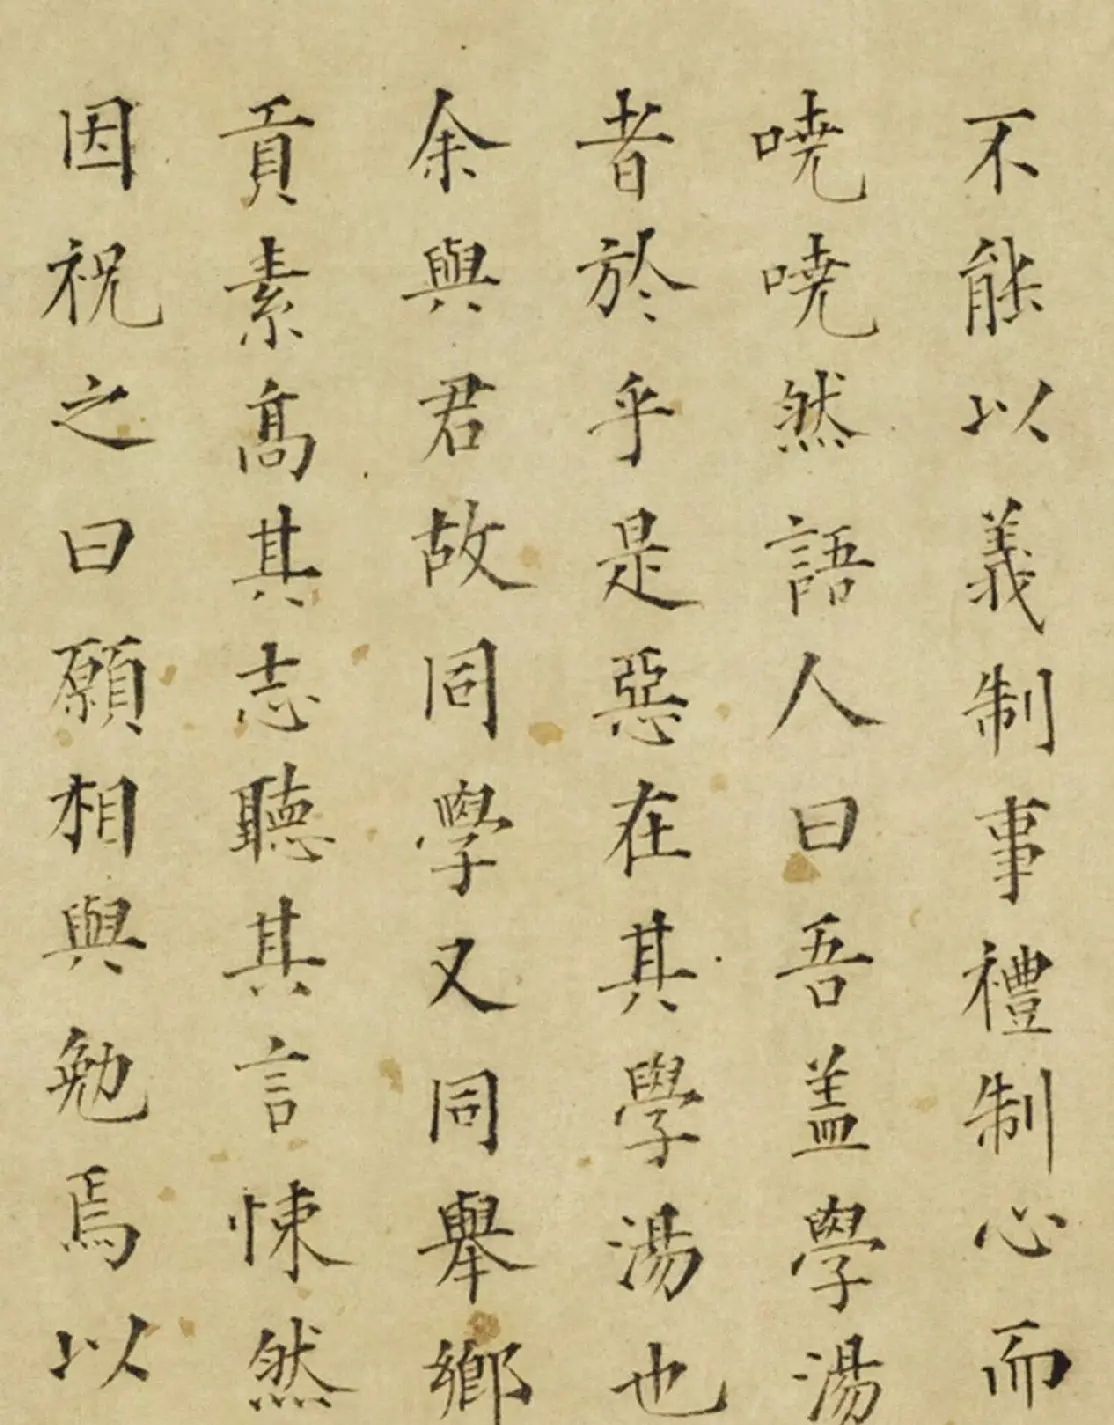 不能以義制事禮制心而
嘵嘵然語人曰吾盖學湯
者於乎是惡在其學湯也
余與君故同學又同舉鄉
貢素高其志聽其言悚然
因祝之曰願相與勉焉以